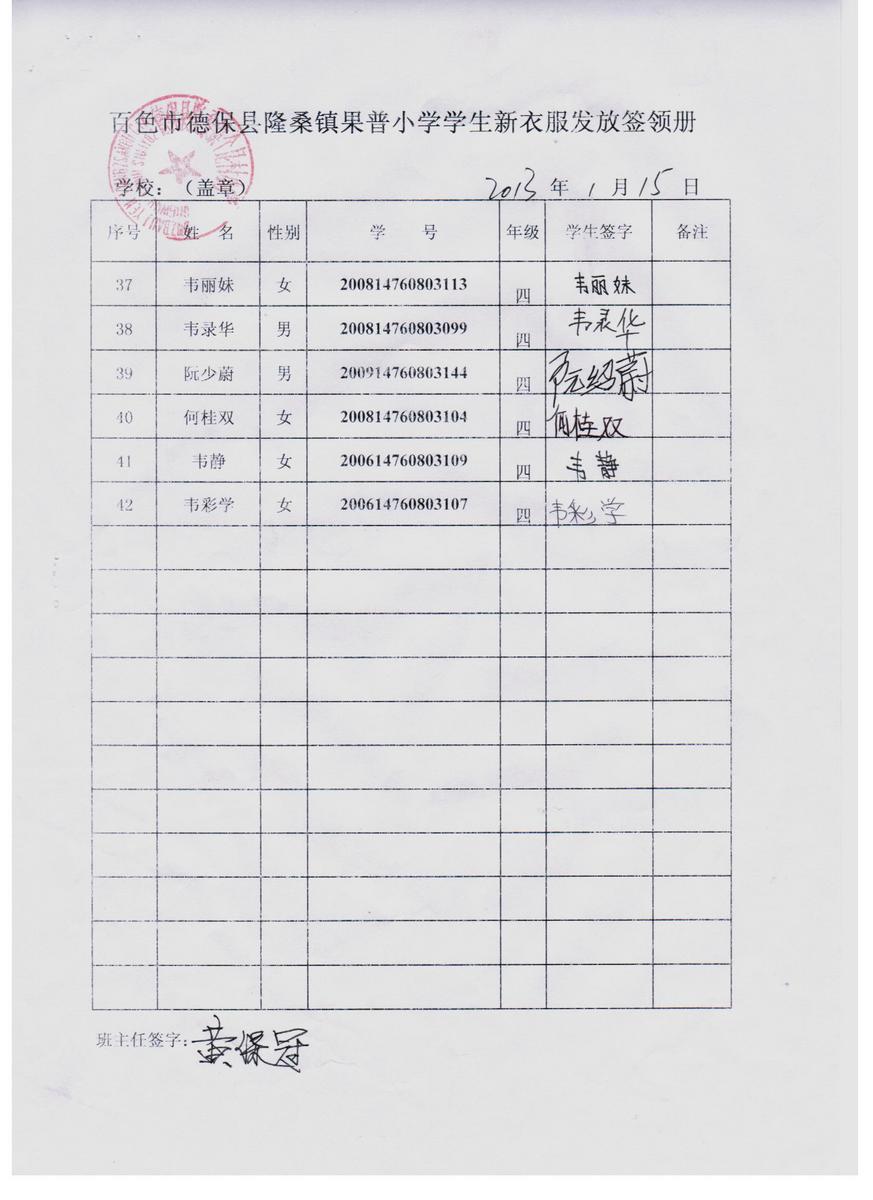 百色市德保县隆桑镇果普小学学生新衣服发放签领册
学校：（盖章） 2013 年 1 月 15 日
序号 姓 名 性别 学 号 年级 学生签字 备注
37 韦丽妹 女 200814760803113 四 韦丽妹
38 韦录华 男 200814760803099 四 韦录华
39 阮少蔚 男 200914760803144 四 阮绍蔚
40 何桂双 女 200814760803104 四 何桂双
41 韦静 女 200614760803109 四 韦静
42 韦彩学 女 200614760803107 四 韦彩学
班主任签字：黄保冠